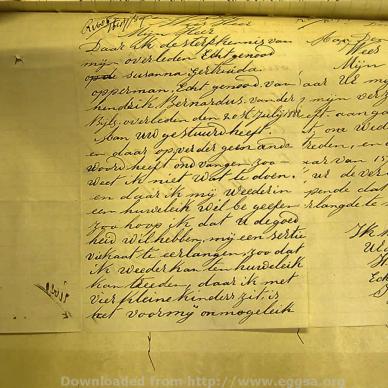 Mijn Heer
Daar ik de sterfkennis van
mijn overleden Echtgenood
Susanna Gertruida
opperman, Echtgenood van
hendrik Bernardus van der
Byl, overleden den 20
aan UW gestuurd heeft.
en daar op verder geen and
woord heeft ondvangen, zoo
weet ik niet wat te doen.
en daar ik mij weeder in
een huweleik wil be geefen
zoo hoop ik dat U de goed
heid wil hebben, mij een serti
vikaat te eerlangen, zoo dat
ik weeder kan len huweleik
kan treeden, daar ik met
vier kleine kinders zit, is
het voor mij onmogeleik
Wees
Mijn
aar UE m
mijn ver
heeft aange
ons Wed
heden, en
aar van 15
ur de ver
pende da
rlangde te
Ik
Downloaded from http://www.eggsa.org